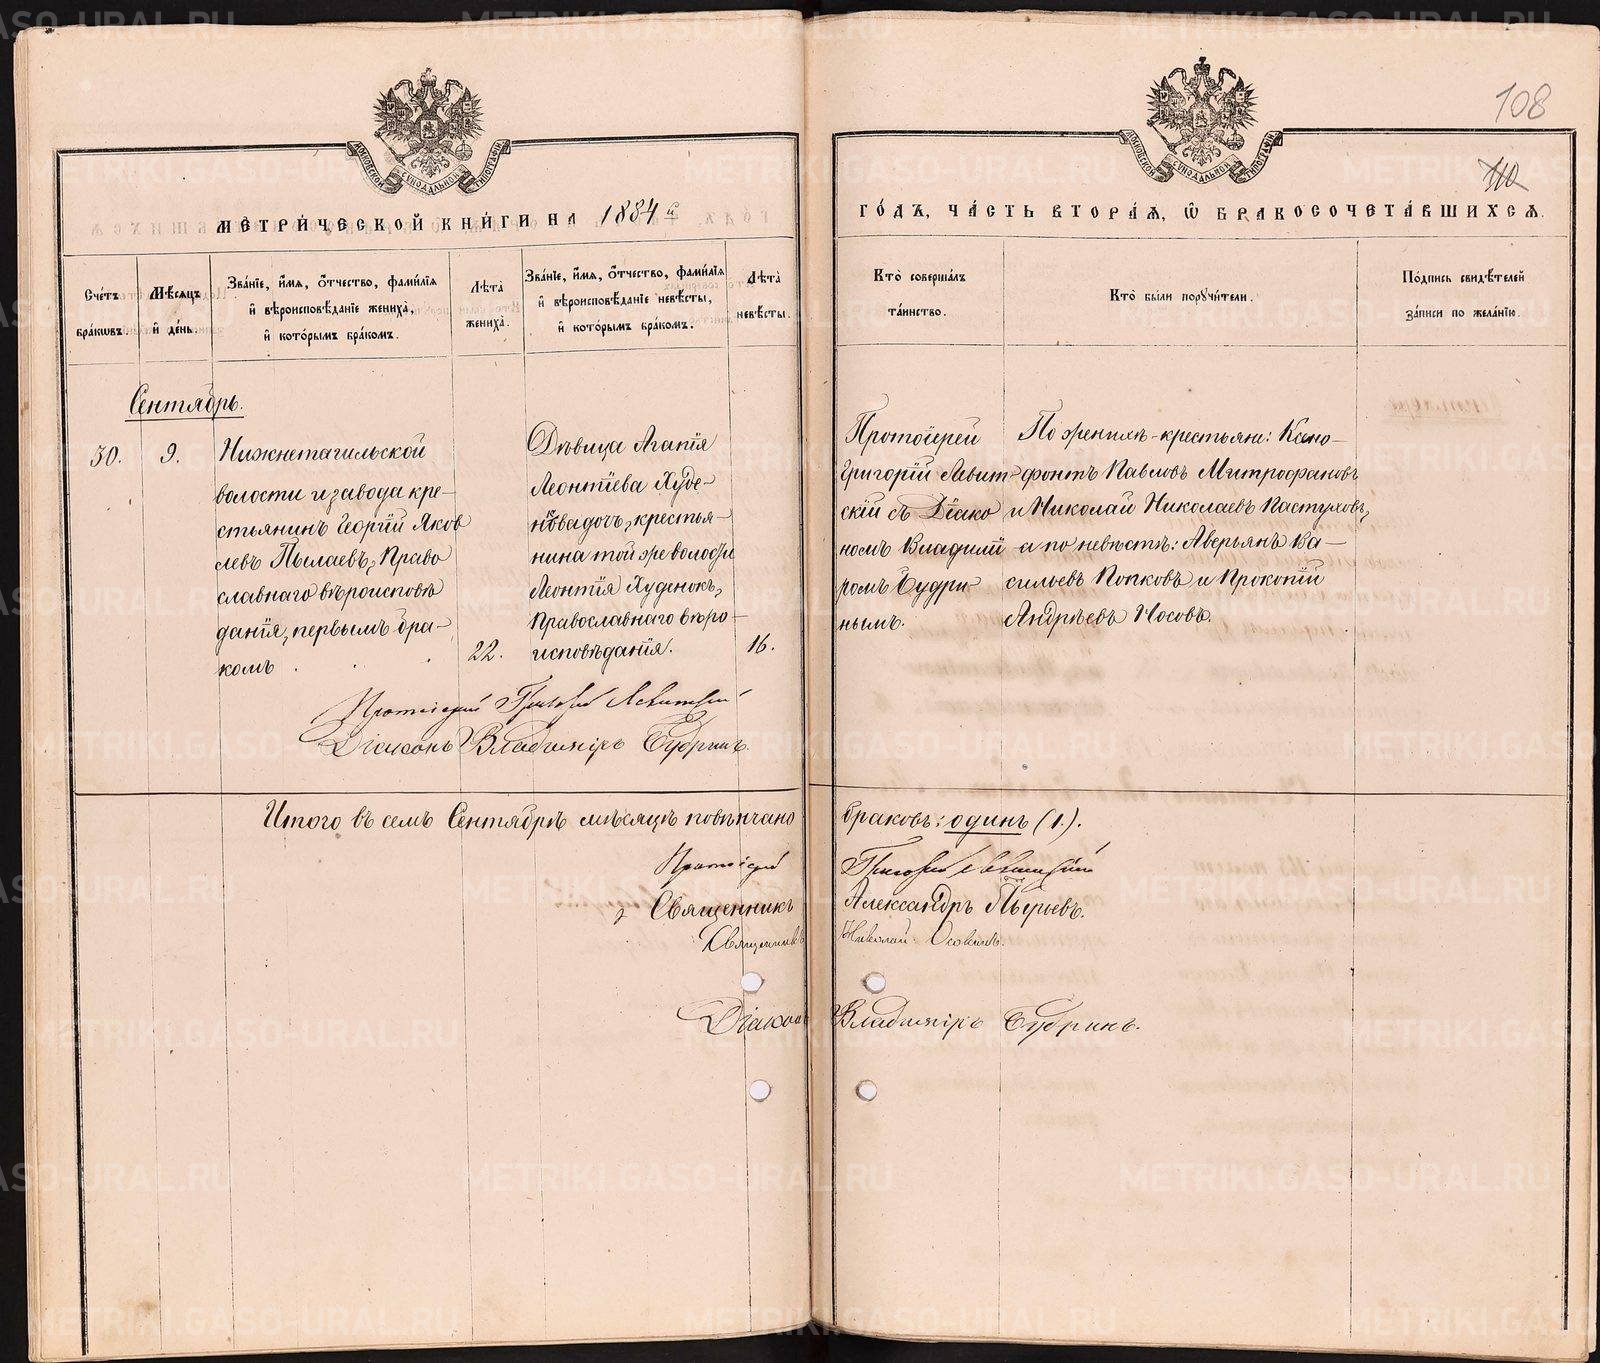 108
110
МОСКОВСКОЙ СѴНОДАЛЬНОЙ ТИПОГРАФІИ
МОСКОВСКОЙ СѴНОДАЛЬНОЙ ТИПОГРАФІИ
МЕТРИ́ЧЕСКОЙ КНИ́ГИ НА 1884 й
ГО́ДЪ, ЧА́СТЬ ВТОРА́Я, Ѿ БРАКОСОЧЕТА́ВШИХСЯ.
Сче́тъ бра́кѡвъ.
Мѣ́сяцъ и҆ де́нь.
Зва́нїе, и҆́мя, ѻ҆́тчество, фами́лїя и҆ вѣроисповѣ́данїе жениха̀, и҆ кото́рымъ бра́комъ.
Лѣта̀ жениха̀.
Зва́нїе, и҆́мя, ѻ҆́тчество, фами́лїя и҆ вѣроисповѣ́данїе невѣ́сты, и҆ кото́рымъ бра́комъ.
Лѣта̀ невѣ́сты.
Кто̀ соверша́лъ та́инство.
Кто̀ бы́ли порꙋчи́тели.
По́дпись свидѣ́телей за́писи по жела́нїю.
Сентябрь.
30.
9.
Нижнетагильской
волости и завода кре-
стьянинъ Георгій Яков
левъ Пылаевъ, Право
славнаго вѣроисповѣ
данія, первымъ бра-
комъ
22.
Дѣвица Агапія
Леонтіева Худе-
нкова дочь, крестья-
нина той же волости
Леонтія Худенокъ,
Православнаго вѣро-
исповѣданія.
16.
Протоіерей
Григорій Левит-
скій съ Діако
номъ Владимі
ромъ Будри-
нымъ.
По женихѣ - крестьяне: Ксено-
фонтъ Павловъ Митрофановъ
и Николай Николаевъ Пастуховъ,
а по невѣстѣ: Аверьянъ Ва-
сильевъ Попковъ и Прокопій
Андрѣевъ Носовъ.
Протоіерей Григорій Левитскій
Діаконъ Владиміръ Будринъ.
Итого въ семъ Сентябрѣ мѣсяцѣ повѣнчано браковъ: одинъ (1.).
Протоіерей Григорій Левитскій
Священникъ Александръ
Священникъ Николай
Діаконъ Владиміръ Будринъ.
METRIKI.GASO-URAL.RU